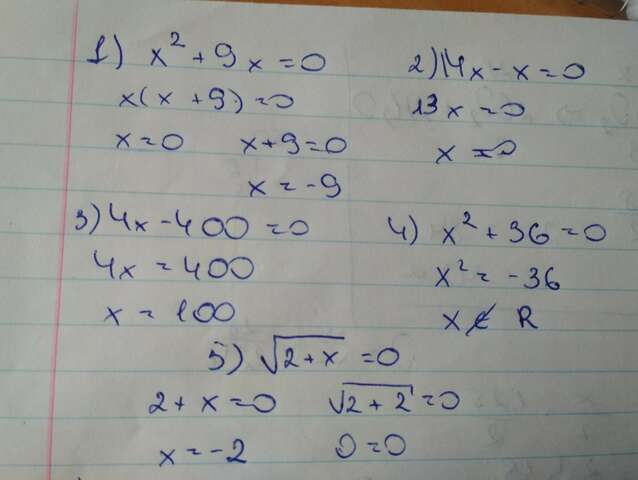 1) x² + 9x = 0
x(x + 9) = 0
x = 0 x + 9 = 0
x = -9
2) 14x - x = 0
13x = 0
x = 0
3) 4x - 400 = 0
4x = 400
x = 100
4) x² + 36 = 0
x² = -36
x ∉ R
5) √(2 + x) = 0
2 + x = 0 √(2 + 2) = 0
x = -2 0 = 0